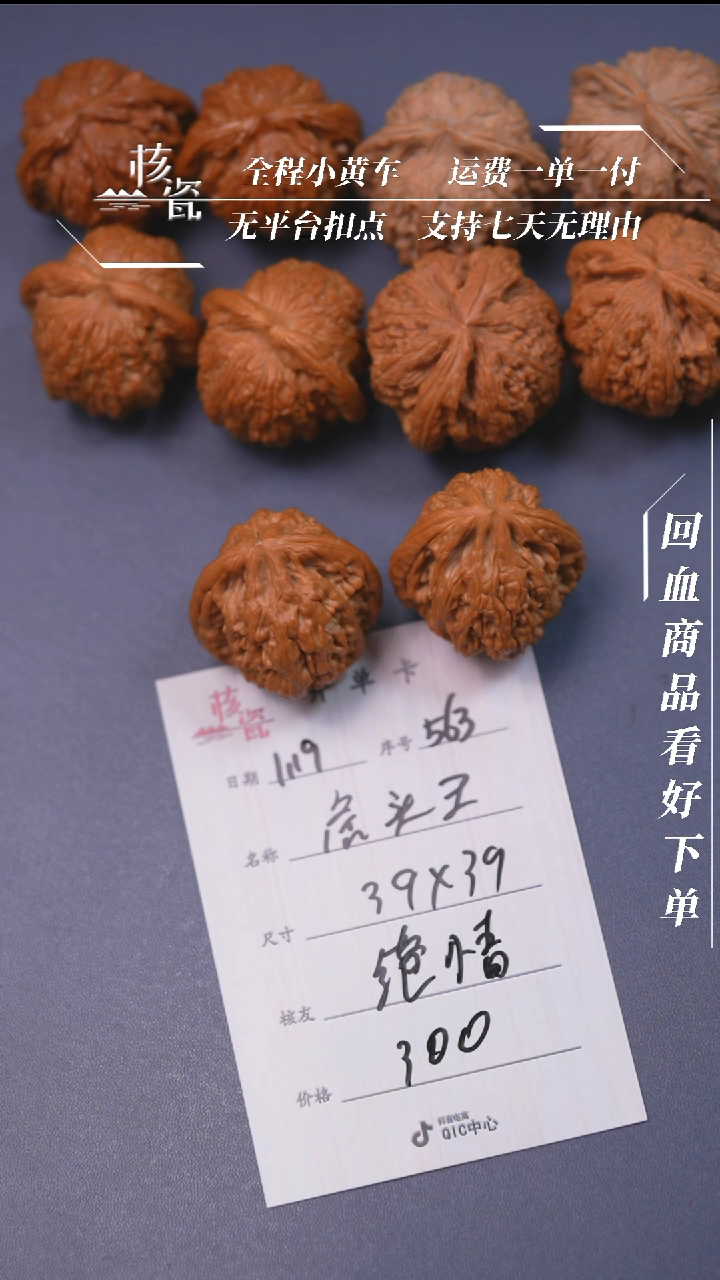 核瓷
全程小黄车 运费一单一付
无平台扣点 支持七天无理由
回血商品看好下单
核瓷
开单卡
日期 1.19 序号 563
名称 虎头王
尺寸 39X39
核友 绝情
价格 300
抖音电商
QIC中心